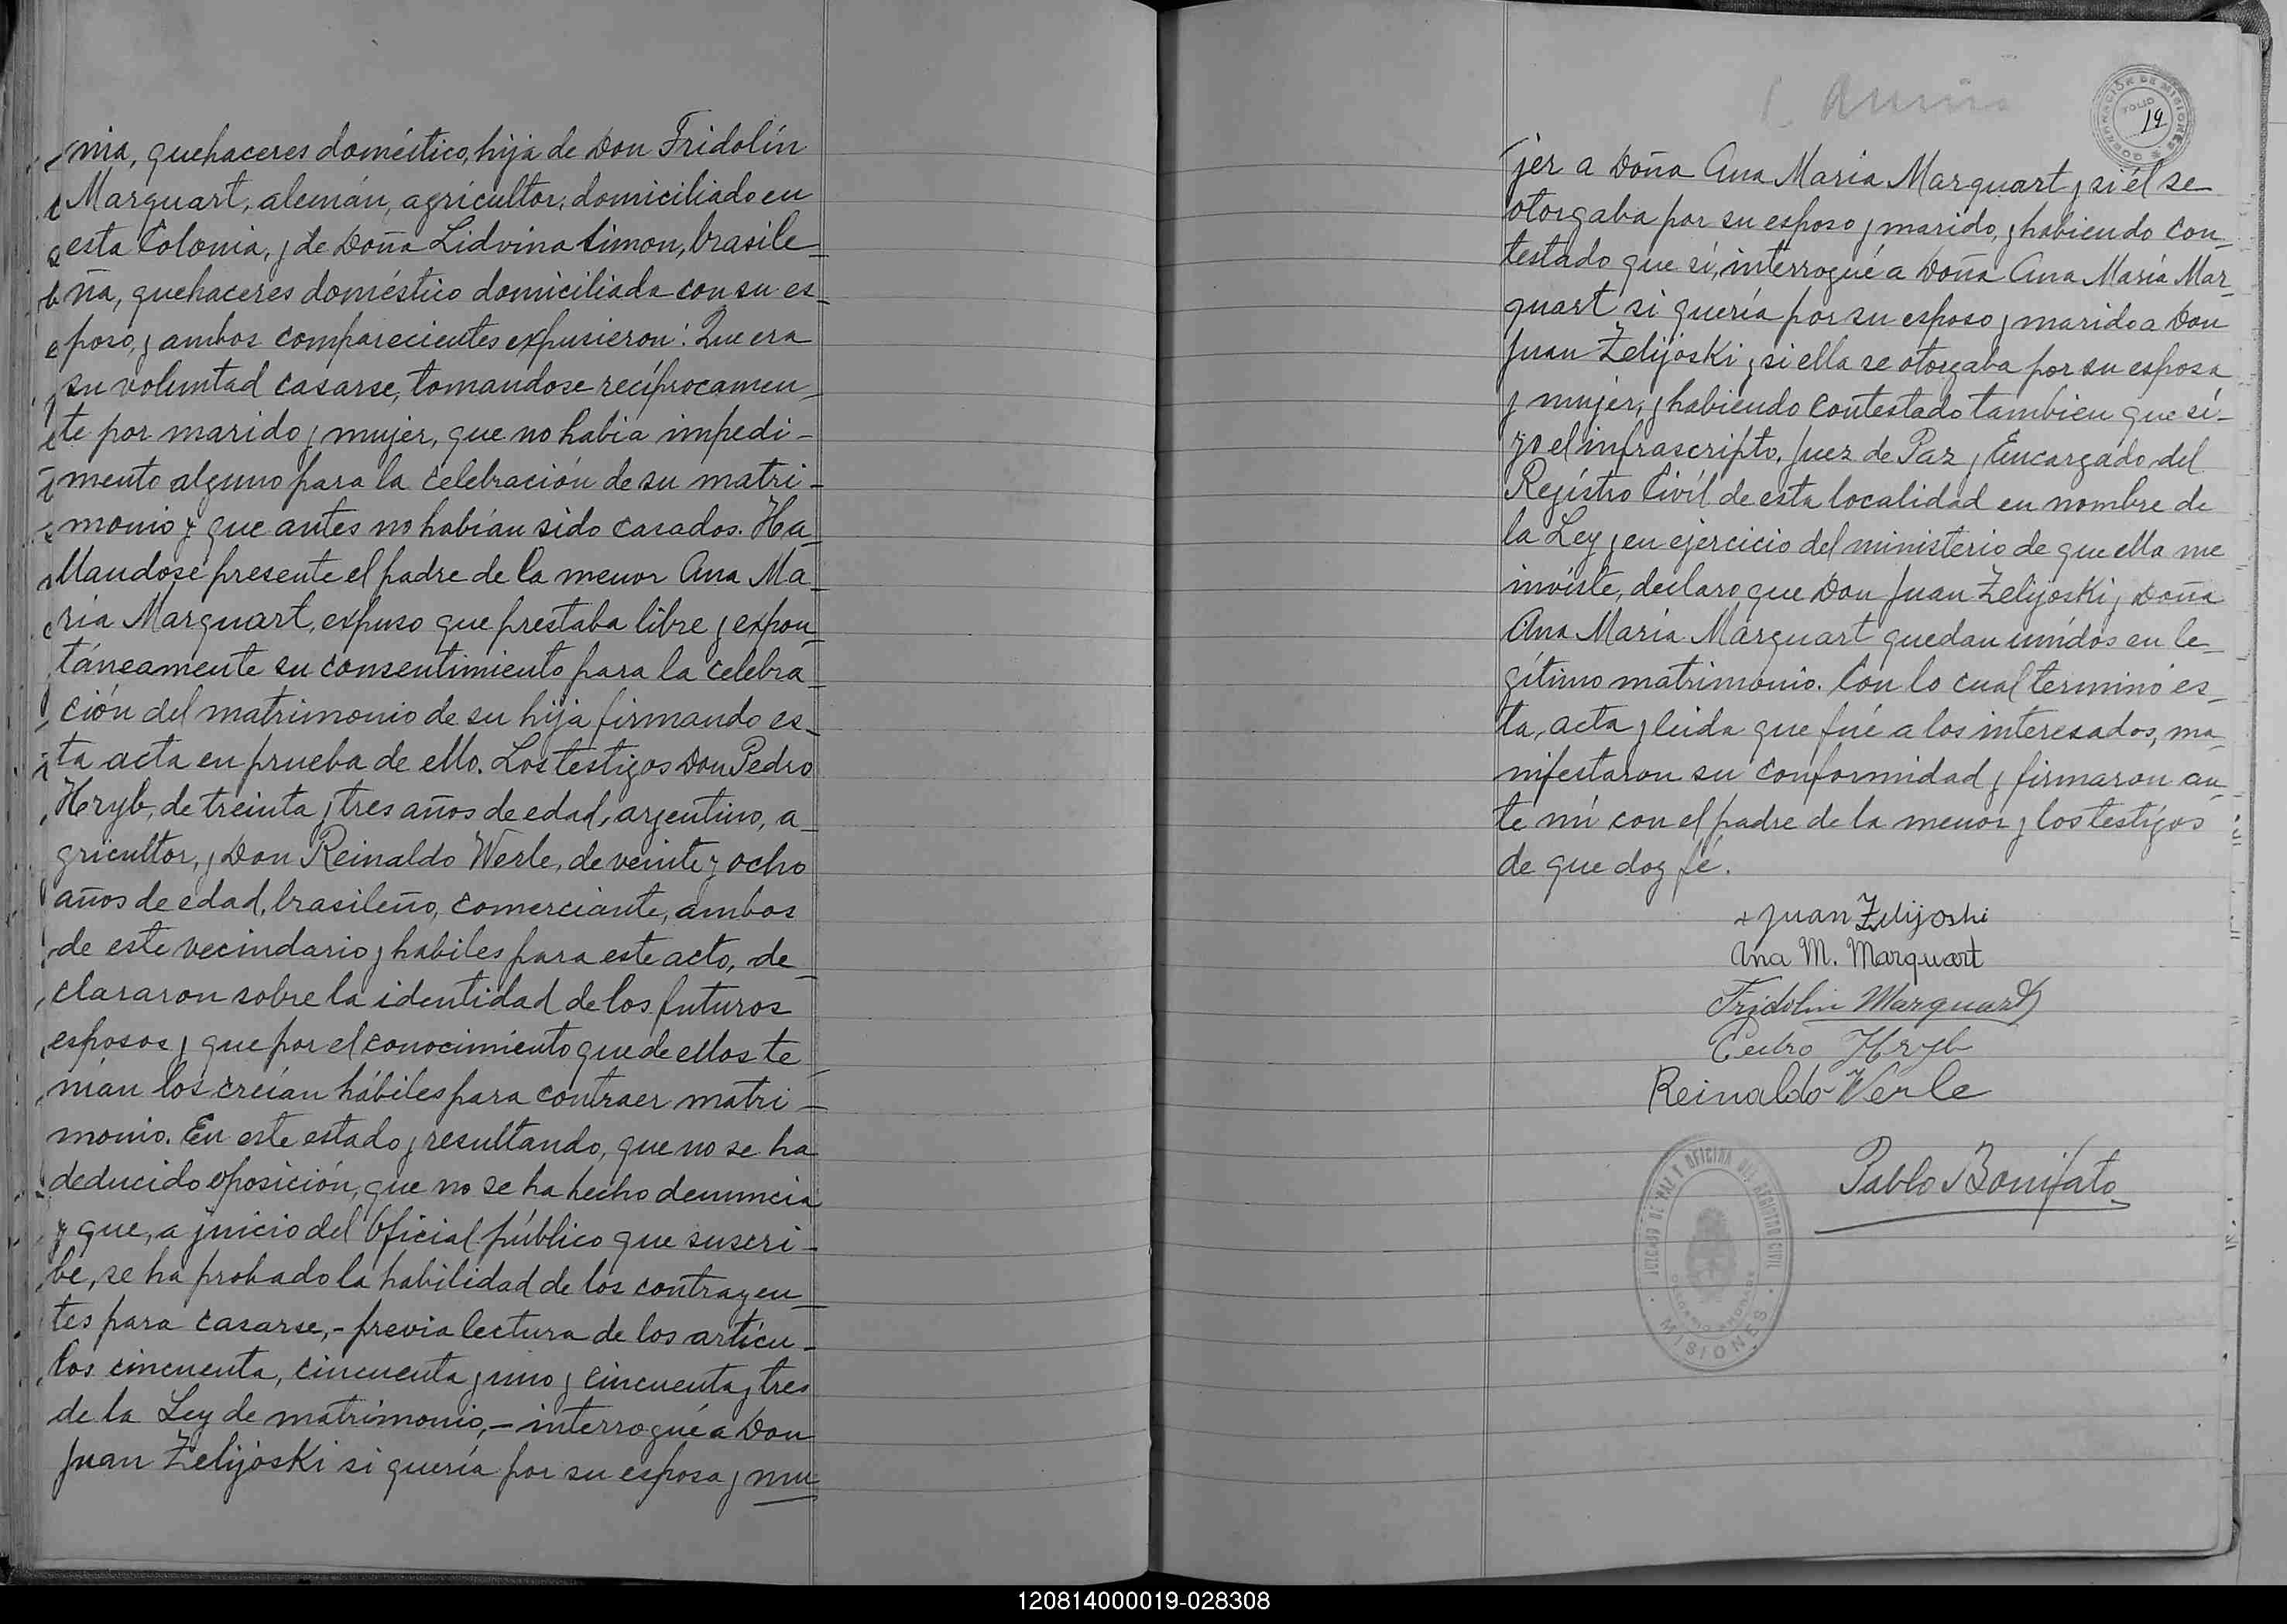 nia, quehaceres doméstico, hija de Don Fridolín
Marquart, alemán, agricultor, domiciliado en
esta Colonia, y de Doña Lidvina Simon, brasile-
ña, quehaceres doméstico domiciliada con su es-
poso, y ambos comparecientes expusieron: Que era
su voluntad casarse, tomandose recíprocamen-
te por marido y mujer, que no habia impedi-
mento alguno para la celebración de su matri-
monio y que antes no habían sido casados. Ha-
llandose presente el padre de la menor Ana Ma-
ría Marquart, expuso que prestaba libre y expon-
táneamente su consentimiento para la celebra-
ción del matrimonio de su hija firmando es-
ta acta en prueba de ello. Los testigos Don Pedro
Hryb, de treinta y tres años de edad, argentino, a-
gricultor, y Don Reinaldo Werle, de veinte y ocho
años de edad, brasileño, comerciante, ambos
de este vecindario y habiles para este acto, de-
clararon sobre la identidad de los futuros
esposos y que por el conocimiento que de ellos te-
nían los creían hábiles para contraer matri-
monio. En este estado y resultando, que no se ha
deducido oposición, que no se ha hecho denuncia
y que, a juicio del Oficial público que suscri-
be, se ha probado la habilidad de los contrayen-
tes para casarse,- previa lectura de los artícu-
los cincuenta, cincuenta y uno y cincuenta y tres
de la Ley de matrimonio,- interrogué a Don
Juan Zelijoski si quería por su esposa y mu
GOBERNACIÓN DE MISIONES
FOLIO
19
jer a Doña Ana María Marquart y si él se
otorgaba por su esposo y marido, y habiendo con-
testado que sí, interrogué a Doña Ana María Mar-
quart si quería por su esposo y marido a Don
Juan Zelijoski y si ella se otorgaba por su esposa
y mujer, y habiendo contestado tambien que sí-
yo el infrascripto, Juez de Paz y Encargado del
Regístro Civíl de esta localidad en nombre de
la Ley y en ejercicio del ministerio de que ella me
inviste, declaro que Don Juan Zelijoski y Doña
Ana María Marquart quedan unídos en le-
gítimo matrimonio. Con lo cual terminó es-
ta, acta y leida que fué a los interesados, ma-
nifestaron su conformidad y firmaron an-
te mí con el padre de la menor y los testigos
de que doy fé.
+ Juan Zelijoshi
Ana M. Marquart
Fridolin Marquart
Pedro Hryb
Reinaldo Werle
Pablo Bonifato
JUZGADO DE PAZ E OFICINA DEL REGISTRO CIVIL
MISIONES
120814000019-028308